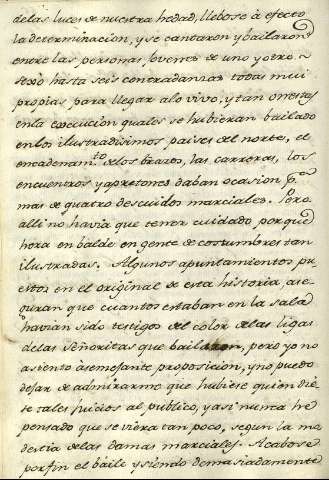 de las luces de nuestra hedad, llebose à efecto
la determinacion, y se cantaron y bailaron
entre las personas jovenes de uno y otro
sexô hasta seis contradanzas todas mui
propias para llegar alo vivo, y tan onestas
en la execucion quales se hubieran bailado
en los ilustradisimos paises del norte, el
encadenam.to de los brazos, las carreras, los
encuentros y apretones daban ocasion p.a
mas de quatro descuidos marciales. Pero
alli no havia que tener cuidado, porque
hera en balde en gente de costumbres tan
ilustradas. Algunos apuntamientos pu
estos en el original de esta historia, ase
guran que cuantos estaban en la sala
havian sido testigos del color de las ligas
de las señoritas que bailaron, pero yo no
asiento à semejante proposicion, y no puedo
dejar de admirarme que hubiese quien die
se tales juicios al público, y asi nunca he
pensado que se viera tan poco, segun la mo
destia de las damas marciales. Acabose
por fin el baile y siendo demasiadamente